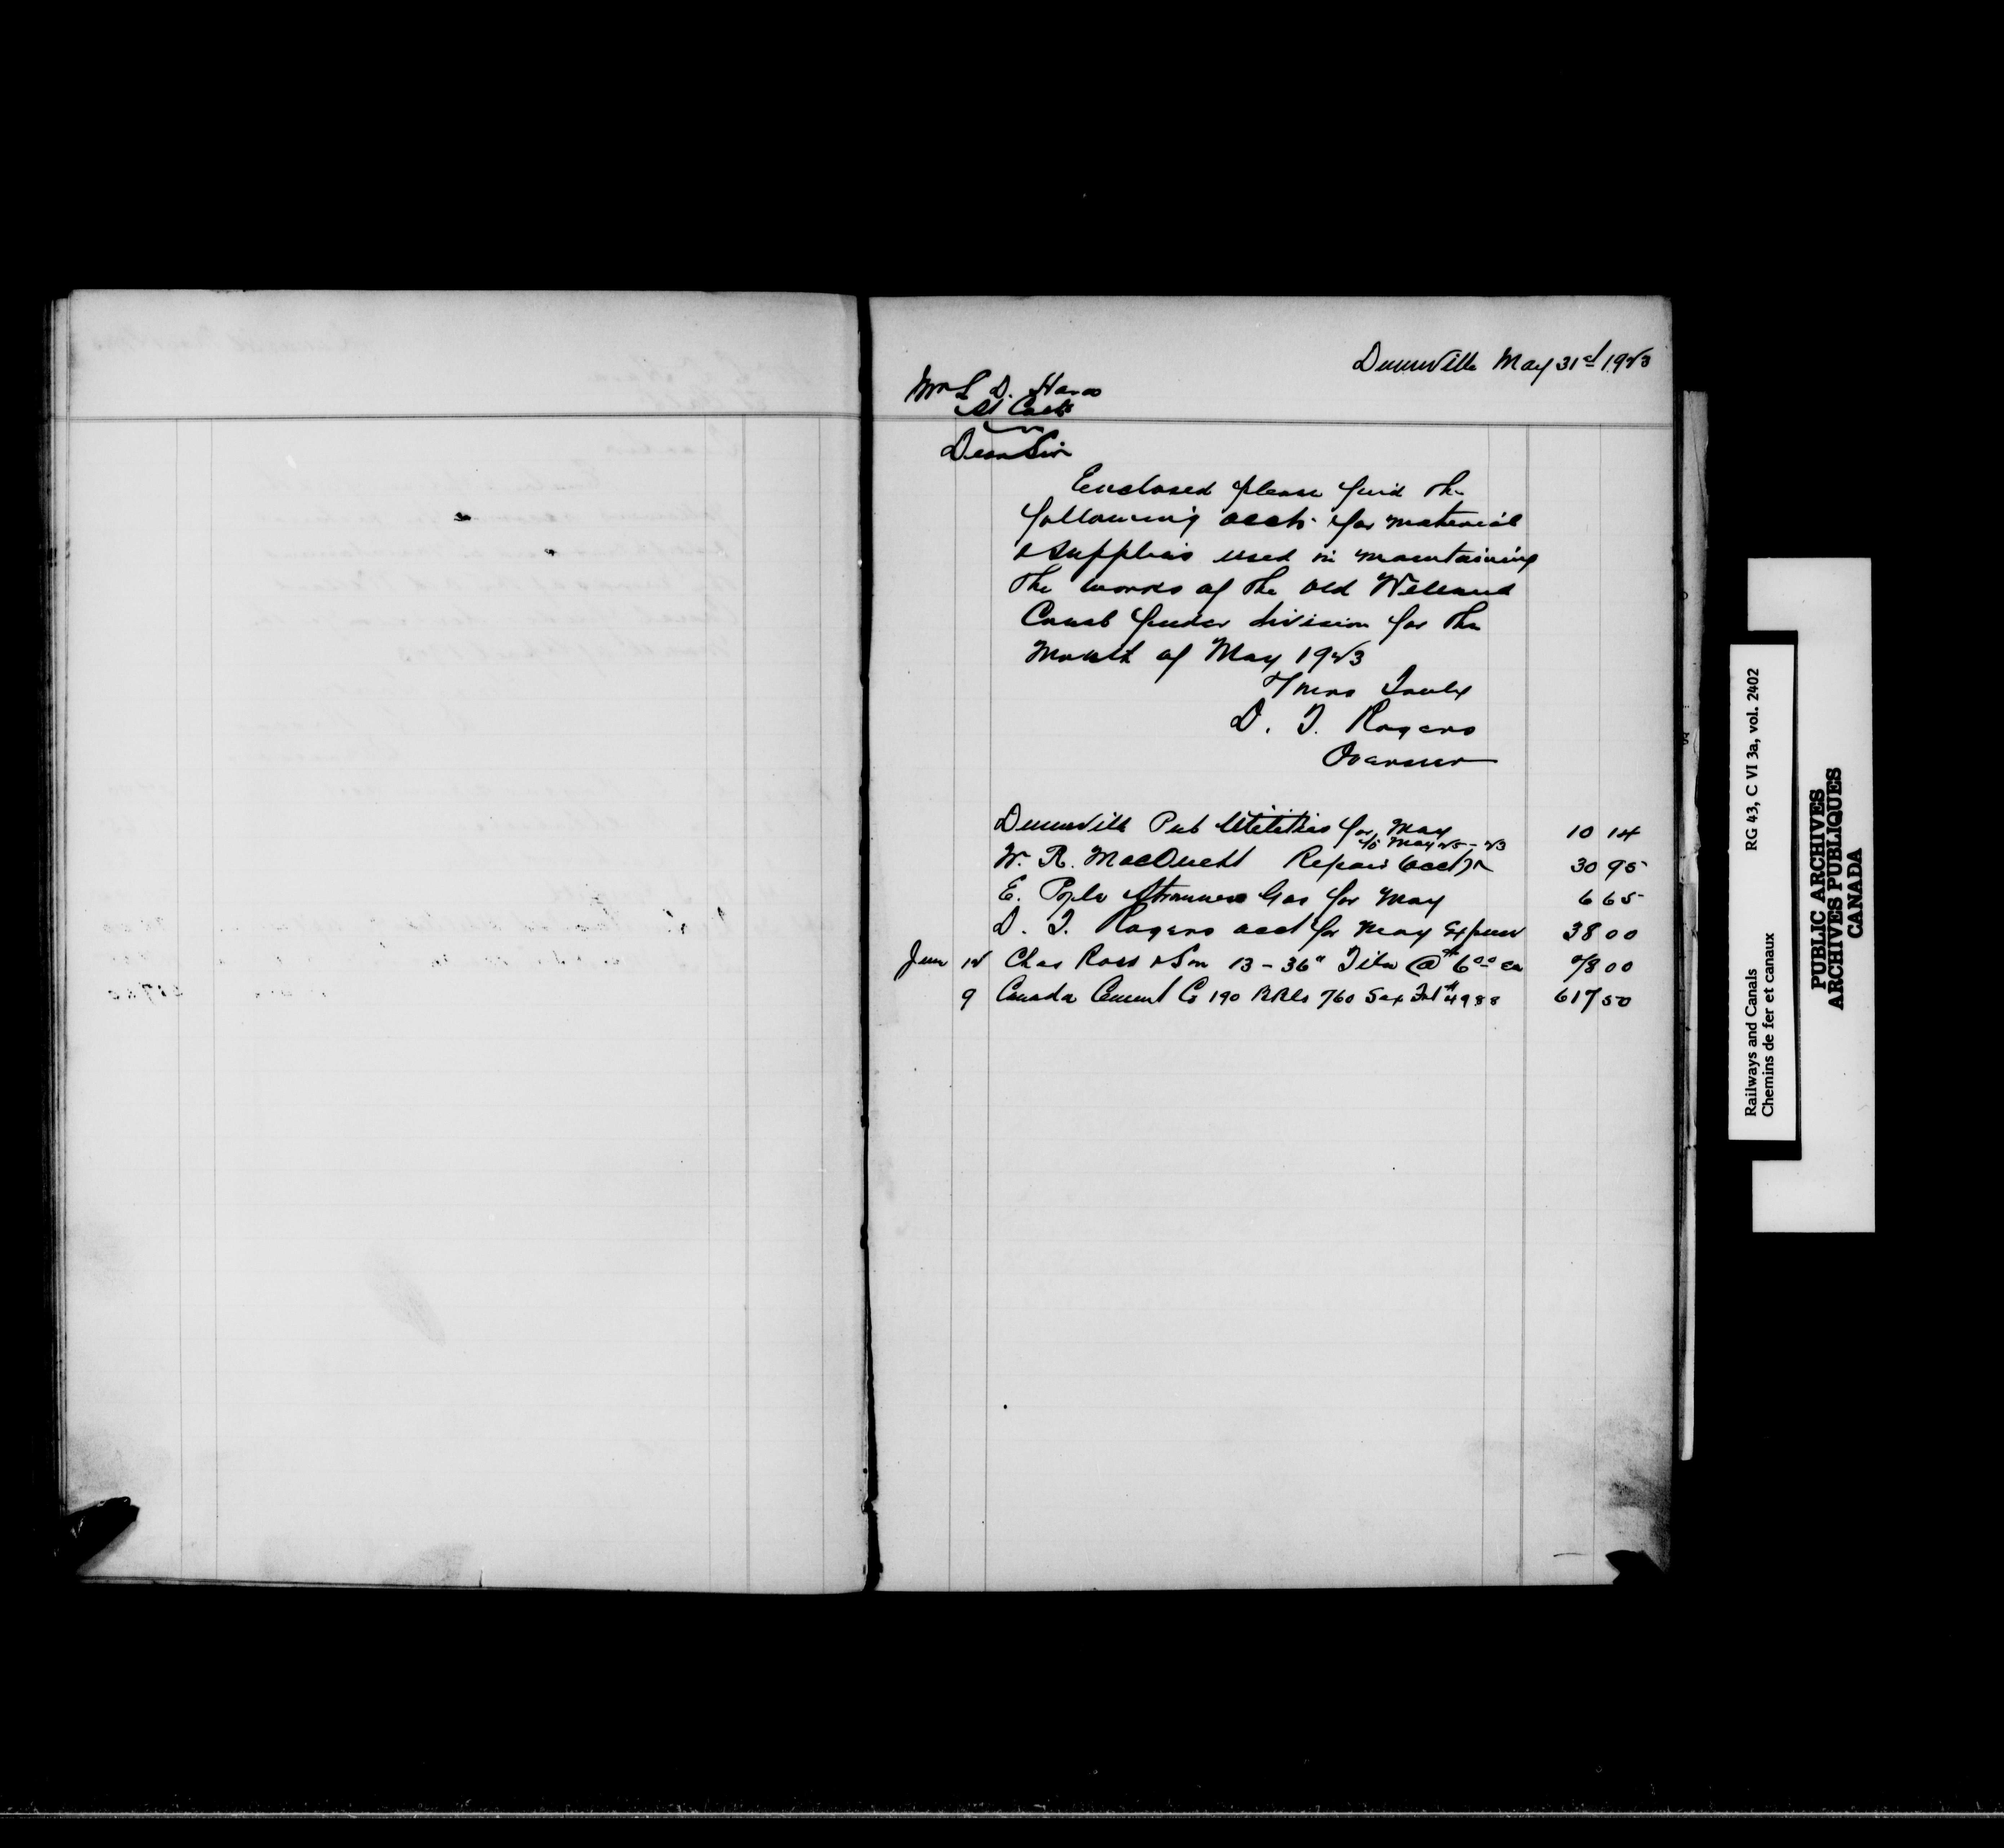 Dunnville May 31st 1923
Mr L D. Hara
St Cath
Dear Sir
Enclosed please find the
following accts for material
& supplies used in maintaining
the works of the old Welland
Canal feeder division for the
Month of May 1923
Yours Truly
D. T. Rogers
Overseer
Dunnville Pub Utilities for May 10 14
to May 25 - 23
W. R. Repair acct 30 95
E. Gas for May 6 65
D. T. Rogers acct for May Expense 38 00
June 12 Chas Ross & Son 13 - 36" Tile @ 6 00 ea 78 00
9 Canada Cement Co 190 BBls 760 Sax 4988 617 50
Railways and Canals RG 43, C VI 3a, vol. 2402
Chemins de fer et canaux
PUBLIC ARCHIVES
ARCHIVES PUBLIQUES
CANADA